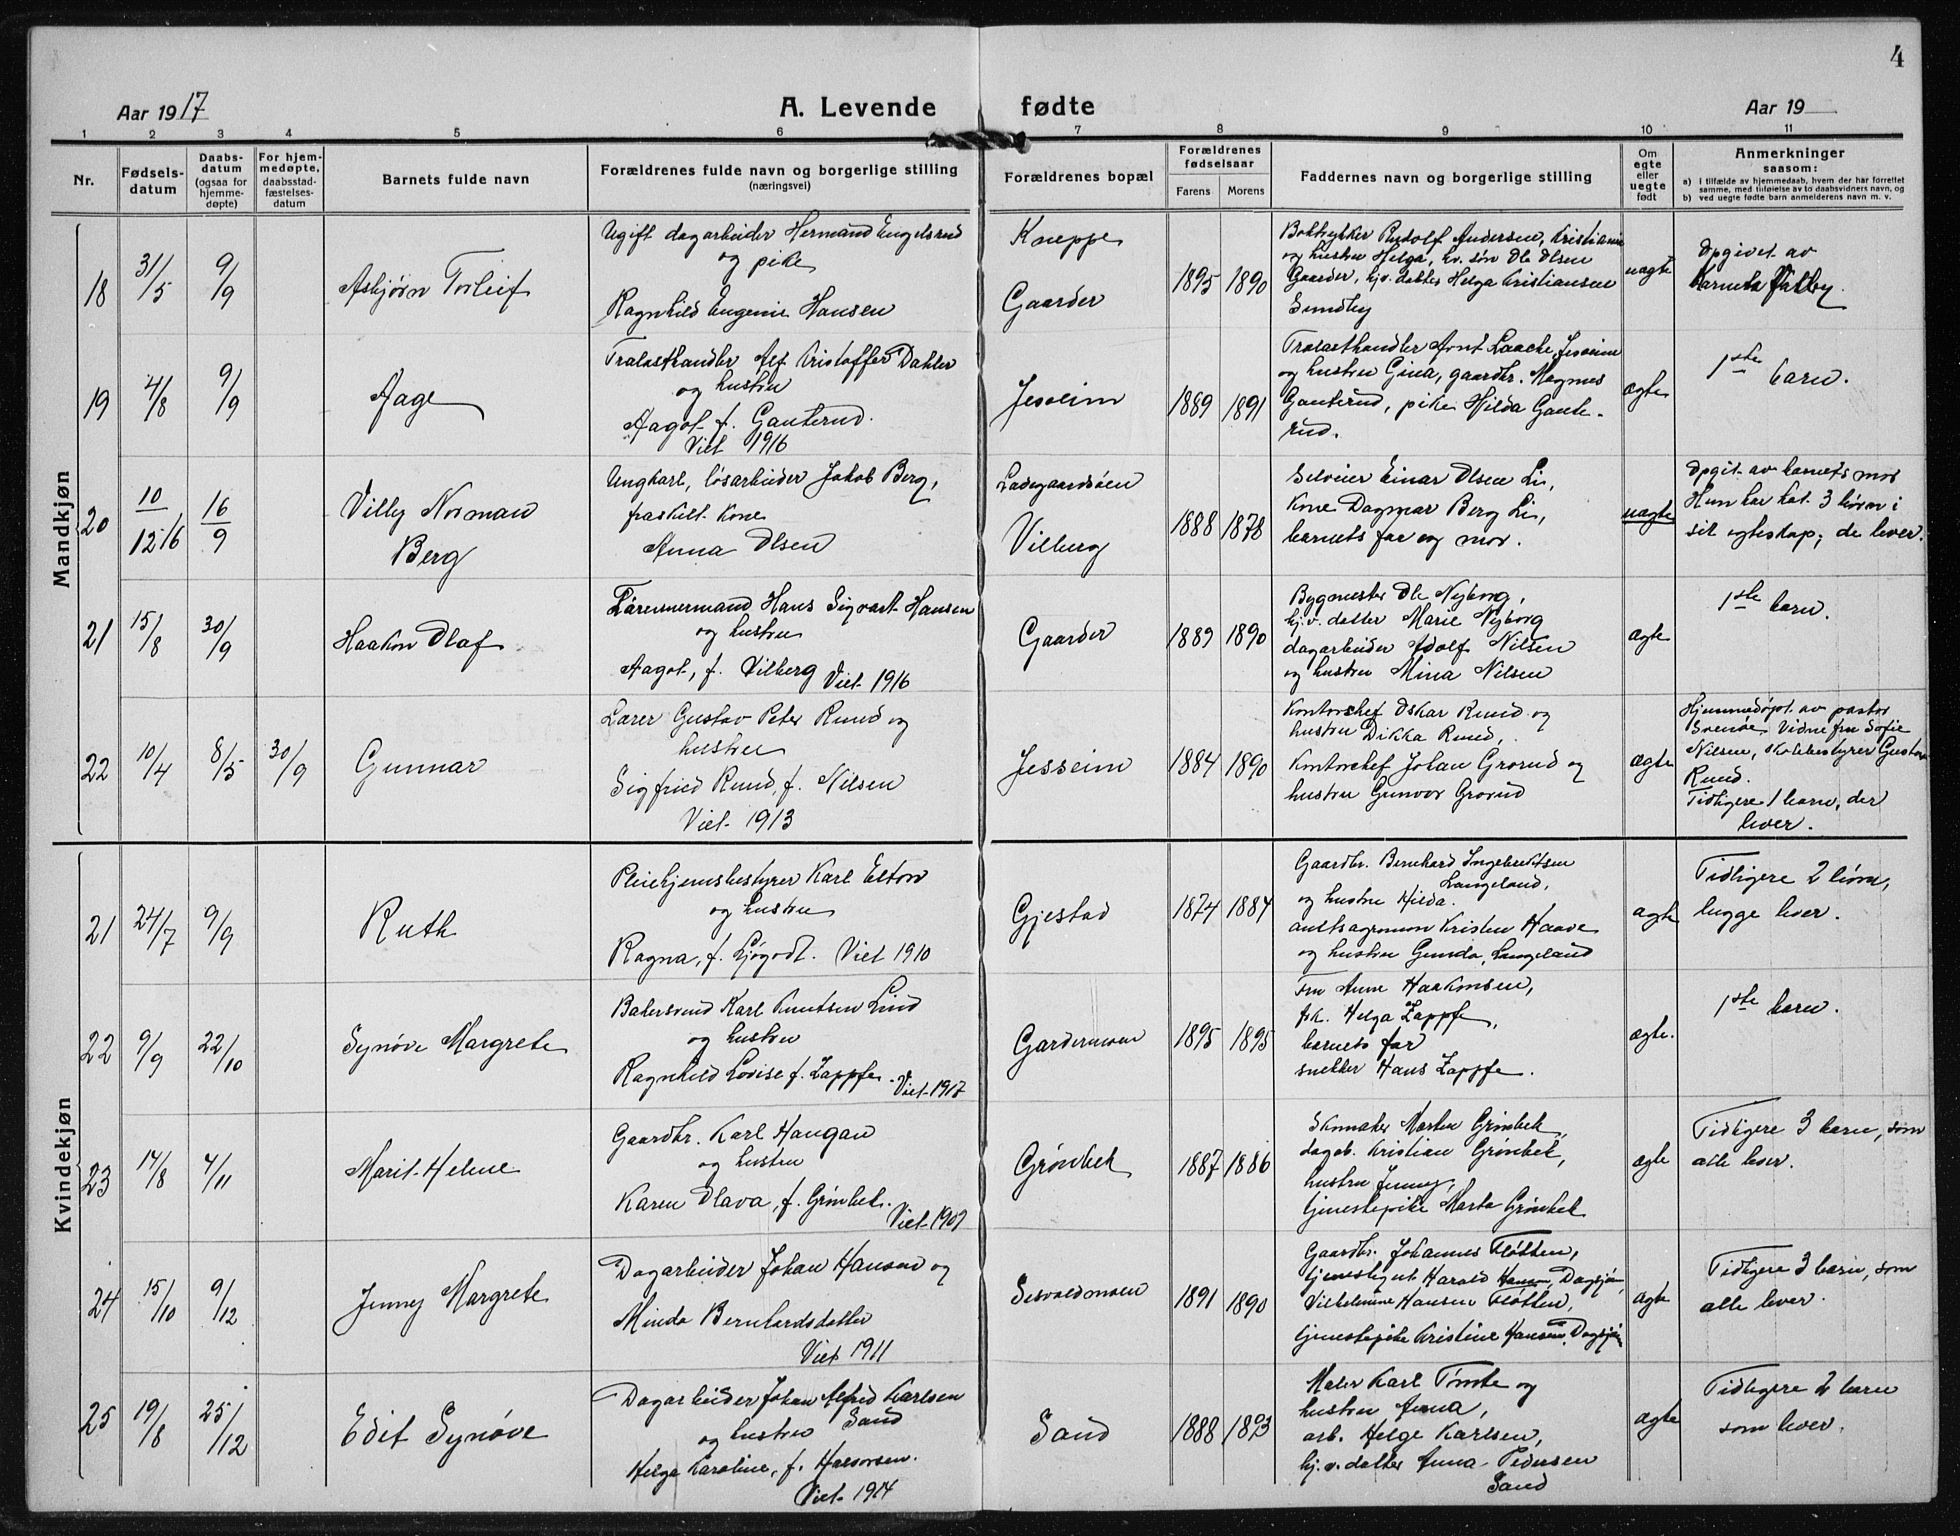 4
Aar 1917
A. Levende fødte
Aar 19
1 2 3 4 5 6 7 8 9 10 11
Nr.
Fødsels-
datum
Daabs-
datum
(ogsaa for
hjemme-
døpte)
For hjem-
medøpte,
daabsstad-
fæstelses-
datum
Barnets fulde navn
Forældrenes fulde navn og borgerlige stilling
(næringsvei)
Forældrenes bopæl
Forældrenes
fødselsaar
Farens Morens
Faddernes navn og borgerlige stilling
Om
egte
eller
uegte
født
Anmerkninger
saasom:
a) I tilfælde av hjemmedaab, hvem der har forrettet
samme, med tilføielse av to daabsvidners navn, og
b) ved uegte fødte barn anmelderens navn m. v.
Mandkjøn
18
31/5
9/9
Asbjørn Torleif
Ugift dagarbeider Hermand Engelsrud
og pike
Ragnhild Eugenie Hansen
Kneppe
Gaarder
1895 1890
Boktrykker Rudolf Andersen, Kristiania
og hustru Helga, hv. søn Ole Olsen
Gaarder, hjv. datter Helga Kristiansen
Sundby
uægte
Opgivet av
barnets
19
4/8
9/9
Aage
Trælasthandler Alf Kristoffer Dahler
og hustru
Aagot f. Gauterud.
Viet 1916
Jesseim
1889 1891
Trælasthandler Arnt Laache, Jesseim
og hustru Gina, gaardbr. Magnus
Gauterud, pike Hilda Gaute-
rud.
ægte
1ste barn.
20
10/12 16
16/9
Villy Norman
Berg
Ungkarl, løsarbeider Jakob Berg,
fraskilt kone
Anna Olsen
Ladegaardsøen
Vilberg
1888 1878
Einar Olsen Li,
Kone Dagmar Berg Li,
barnets far og mor.
uægte
Opgit av barnets mor
Hun har hat 3 børn i
sit egteskap, de lever.
21
15/8
30/9
Haakon Olaf
Hans Sigvart Hansen
og hustru
Aagot, f. Vilberg Viet 1916
Gaarder
1889 1890
Bygmester Ole Nyborg,
hj.v. datter Marie Nyborg
dagarbeider Adolf Nilsen
og hustru Mina Nilsen
ægte
1ste barn.
22
10/4
8/5
30/9
Gunnar
Lærer Gustav Peter Ruud og
hustru
Sigfried Ruud, f. Nilsen
Viet 1913
Jesseim
1884 1890
Kontorchef Oskar Ruud og
hustru Dikka Ruud,
Kontorchef Johan Grorud og
hustru Gunvor Grorud
ægte
Hjemmedøpt av pastor
Svenøe. Vidne fru Sofie
Nilsen, skolebestyrer Gustav
Ruud.
Tidligere 1 barn, der
lever.
Kvindekjøn
21
24/7
9/9
Ruth
Pleiehjemsbestyrer Karl Elton
og hustru
Ragna, f. Ljøgodt. Viet 1910
Gjestad
1874 1884
Gaardbr. Bernhard Ingebretsen
Langeland,
og hustru Hilda.
amtsagronom Kristen Haave
og hustru Gunda, Langeland
ægte
Tidligere 2 børn,
begge lever.
22
9/9
22/10
Synøve Margrete
Bakersvend Karl Knutsen Lind
og hustru
Ragnhild Lovise f. Zappfe. Viet 1917
Gardermoen
1895 1895
Fru Anne Haakonsen,
frk. Helga Zappfe,
barnets far
snekker Hans Zappfe.
ægte.
1ste barn.
23
14/8
4/11
Marit Helene
Gaardbr. Karl Haugan
og hustru
Karen Olava, f. Grønbek.
Viet 1909
Grønbek
1887 1886
Skomaker Morten Grønbek,
dagab. Kristian Grønbek,
hustru Jenny,
tjenestepike Marta Grønbek
ægte
Tidligere 3 barn, som
alle lever.
24
15/10
9/12
Jenny Margrete
Dagarbeider Johan Hansen og
Minda Bernhardsdatter
Viet 1911
Sesvoldmoen
1891 1890
Gaardbr. Johannes Fløtten,
tjenestegut Harald Hansen, Dagsjøn
Vilhelmine Hansen Fløtten,
tjenestepike Kristine Hansen, Dagsjøn
ægte
Tidligere 3 barn, som
alle lever.
25
19/8
25/12
Edit Synøve
Dagarbeider Johan Alfred Karlsen
Sand
og hustru
Helga Karoline, f. Halvorsen.
Viet 1914
Sand
1888 1893
Maler Karl Tømte og
hustru Anna,
arb. Helge Karlsen,
hj.v. datter Anna Pedersen
Sand
ægte
Tidligere 2 barn
som lever.